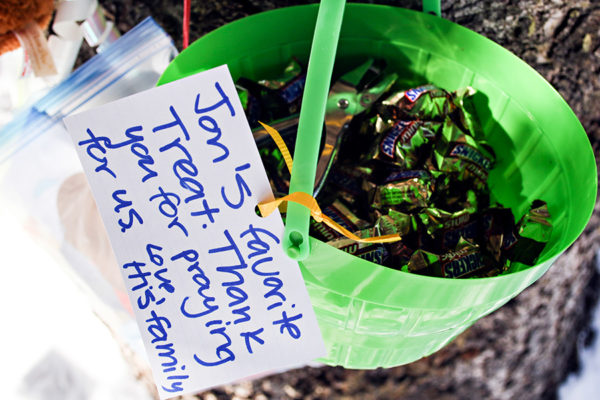 Jon's favorite
Treat. Thank
you for praying
for us.
Love,
His family
SNICKERS
SNICKERS